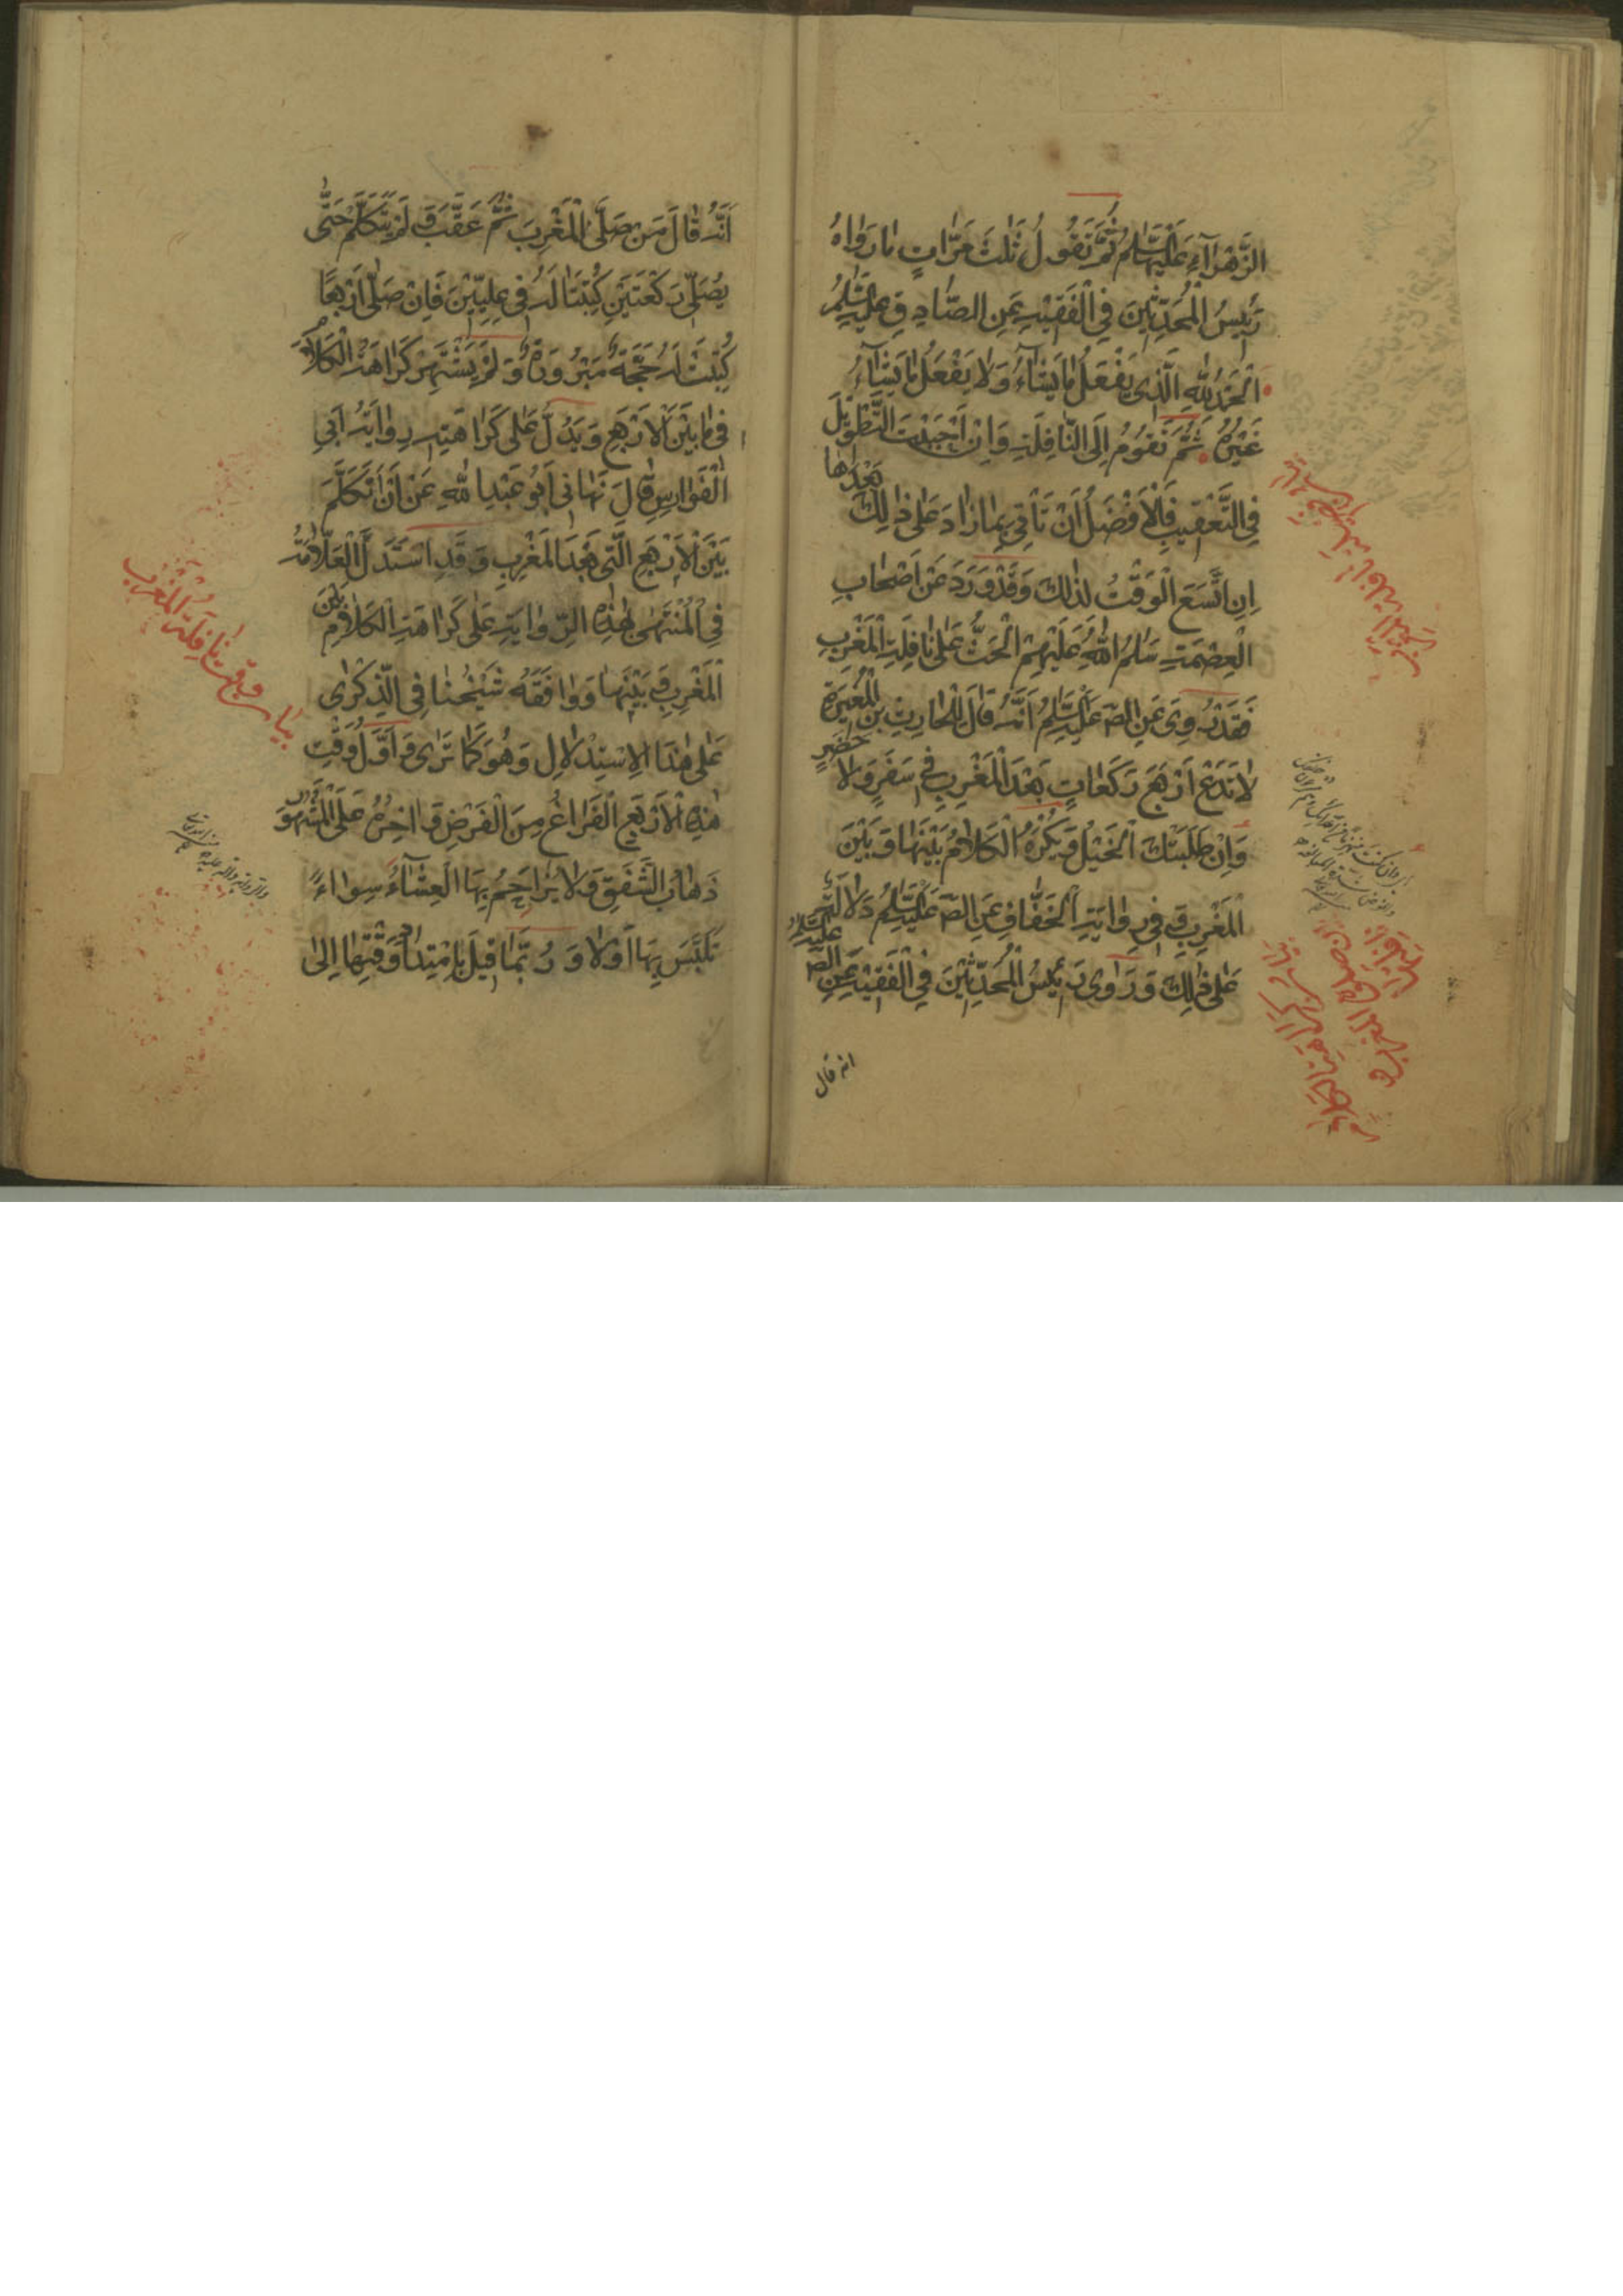 الزَّهْرَاءِ عَلَيْهَا السَّلَامُ ثُمَّ نَقُولُ ثَلٰثَ مَرَّاتٍ مَا رَوَاهُ
رَئِيسُ الْمُحَدِّثِينَ فِي الْفَقِيْهِ عَنِ الصَّادِقِ عَلَيْهِ السَّلَامُ
اَلْحَمْدُ لِلّٰهِ الَّذِي يَفْعَلُ مَا يَشَآءُ وَلَا يَفْعَلُ مَا يَشَآءُ
غَيْرُهُ ثُمَّ نَقُومُ اِلَى النَّافِلَةِ وَاِنْ اَحْبَبْتَ التَّطْوِيْلَ
فِي التَّعْقِيبِ فَالْاَفْضَلُ اَنْ تَأْتِيَ بِمَا زَادَ عَلٰى ذٰلِكَ بَعْدَهَا
اِنِ اتَّسَعَ الْوَقْتُ لِذٰلِكَ وَقَدْ وَرَدَ عَنْ اَصْحَابِ
الْعِصْمَةِ سَلَامُ اللهِ عَلَيْهِمْ الْحَثُّ عَلٰى نَافِلَةِ الْمَغْرِبِ
فَقَدْ رُوِيَ عَنِ الصّ عَلَيْهِ السَّلَمُ اَنَّهُ قَالَ لِلْحَارِثِ بْنِ الْمُغِيرَةِ
لَا تَدَعْ اَرْبَعَ رَكَعَاتٍ بَعْدَ الْمَغْرِبِ فِي سَفَرٍ وَلَا حَضَرٍ
وَاِنْ طَلَبَتْكَ الْخَيْلُ وَيُكْرَهُ الْكَلَامُ بَيْنَهَا وَبَيْنَ
الْمَغْرِبِ وَفِي رِوَايَةِ الْخَفَّافِ عَنِ الصّ عَلَيْهِ السَّلَمُ دَلَالَةٌ
عَلٰى ذٰلِكَ وَرَوٰى رَئِيسُ الْمُحَدِّثِيْنَ فِي الْفَقِيْهِ عَنِ الصّ عَلَيْهِ السَّلَمُ
انه قال
اَنَّهُ قَالَ مَنْ صَلَّى الْمَغْرِبَ ثُمَّ عَقَّبَ وَ لَمْ يَتَكَلَّمْ حَتّٰى
يُصَلِّيَ رَكْعَتَيْنِ كُتِبَتَا لَهُ فِي عِلِّيِّيْنَ فَاِنْ صَلّٰى اَرْبَعًا
كُتِبَتْ لَهُ حَجَّةٌ مَبْرُورَةٌ وَلَمْ يَشْتَهِرْ كَرَاهَةُ الْكَلَامِ
فِي مَا بَيْنَ الْاَرْبَعِ وَيَدُلُّ عَلٰى كَرَاهَتِهِ رِوَايَةُ اَبِي
الْفَوَارِسِ قَالَ نَهَانِي اَبُو عَبْدِ اللهِ عَنْ اَنْ اَتَكَلَّمَ
بَيْنَ الْاَرْبَعِ الَّتِي بَعْدَ الْمَغْرِبِ وَقَدِ اسْتَدَلَّ الْعَلَّامَةُ
فِي الْمُنْتَهٰى بِهٰذِهِ الرِّوَايَةِ عَلٰى كَرَاهَةِ الْكَلَامِ بَيْنَ
الْمَغْرِبِ وَ بَيْنَهَا وَوَافَقَهُ شَيْخُنَا فِي الذِّكْرٰى
عَلٰى هٰذَا الْاِسْتِدْلَالِ وَهُوَ كَمَا تَرٰى وَاَوَّلُ وَقْتِ
هٰذِهِ الْاَرْبَعِ الْفَرَاغُ مِنَ الْفَرْضِ وَ اٰخِرُهُ عَلَى الْمَشْهُورِ
ذَهَابُ الشَّفَقِ وَلَا يُزَاحَمُ بِهَا الْعِشَآءُ سِوَاءً
تَلَبَّسَ بِهَا اَوْلَا وَ رُبَّمَا قِيلَ بِامْتِدَادِ وَقْتِهَا اِلٰى
بيان وقت نافلة المغرب